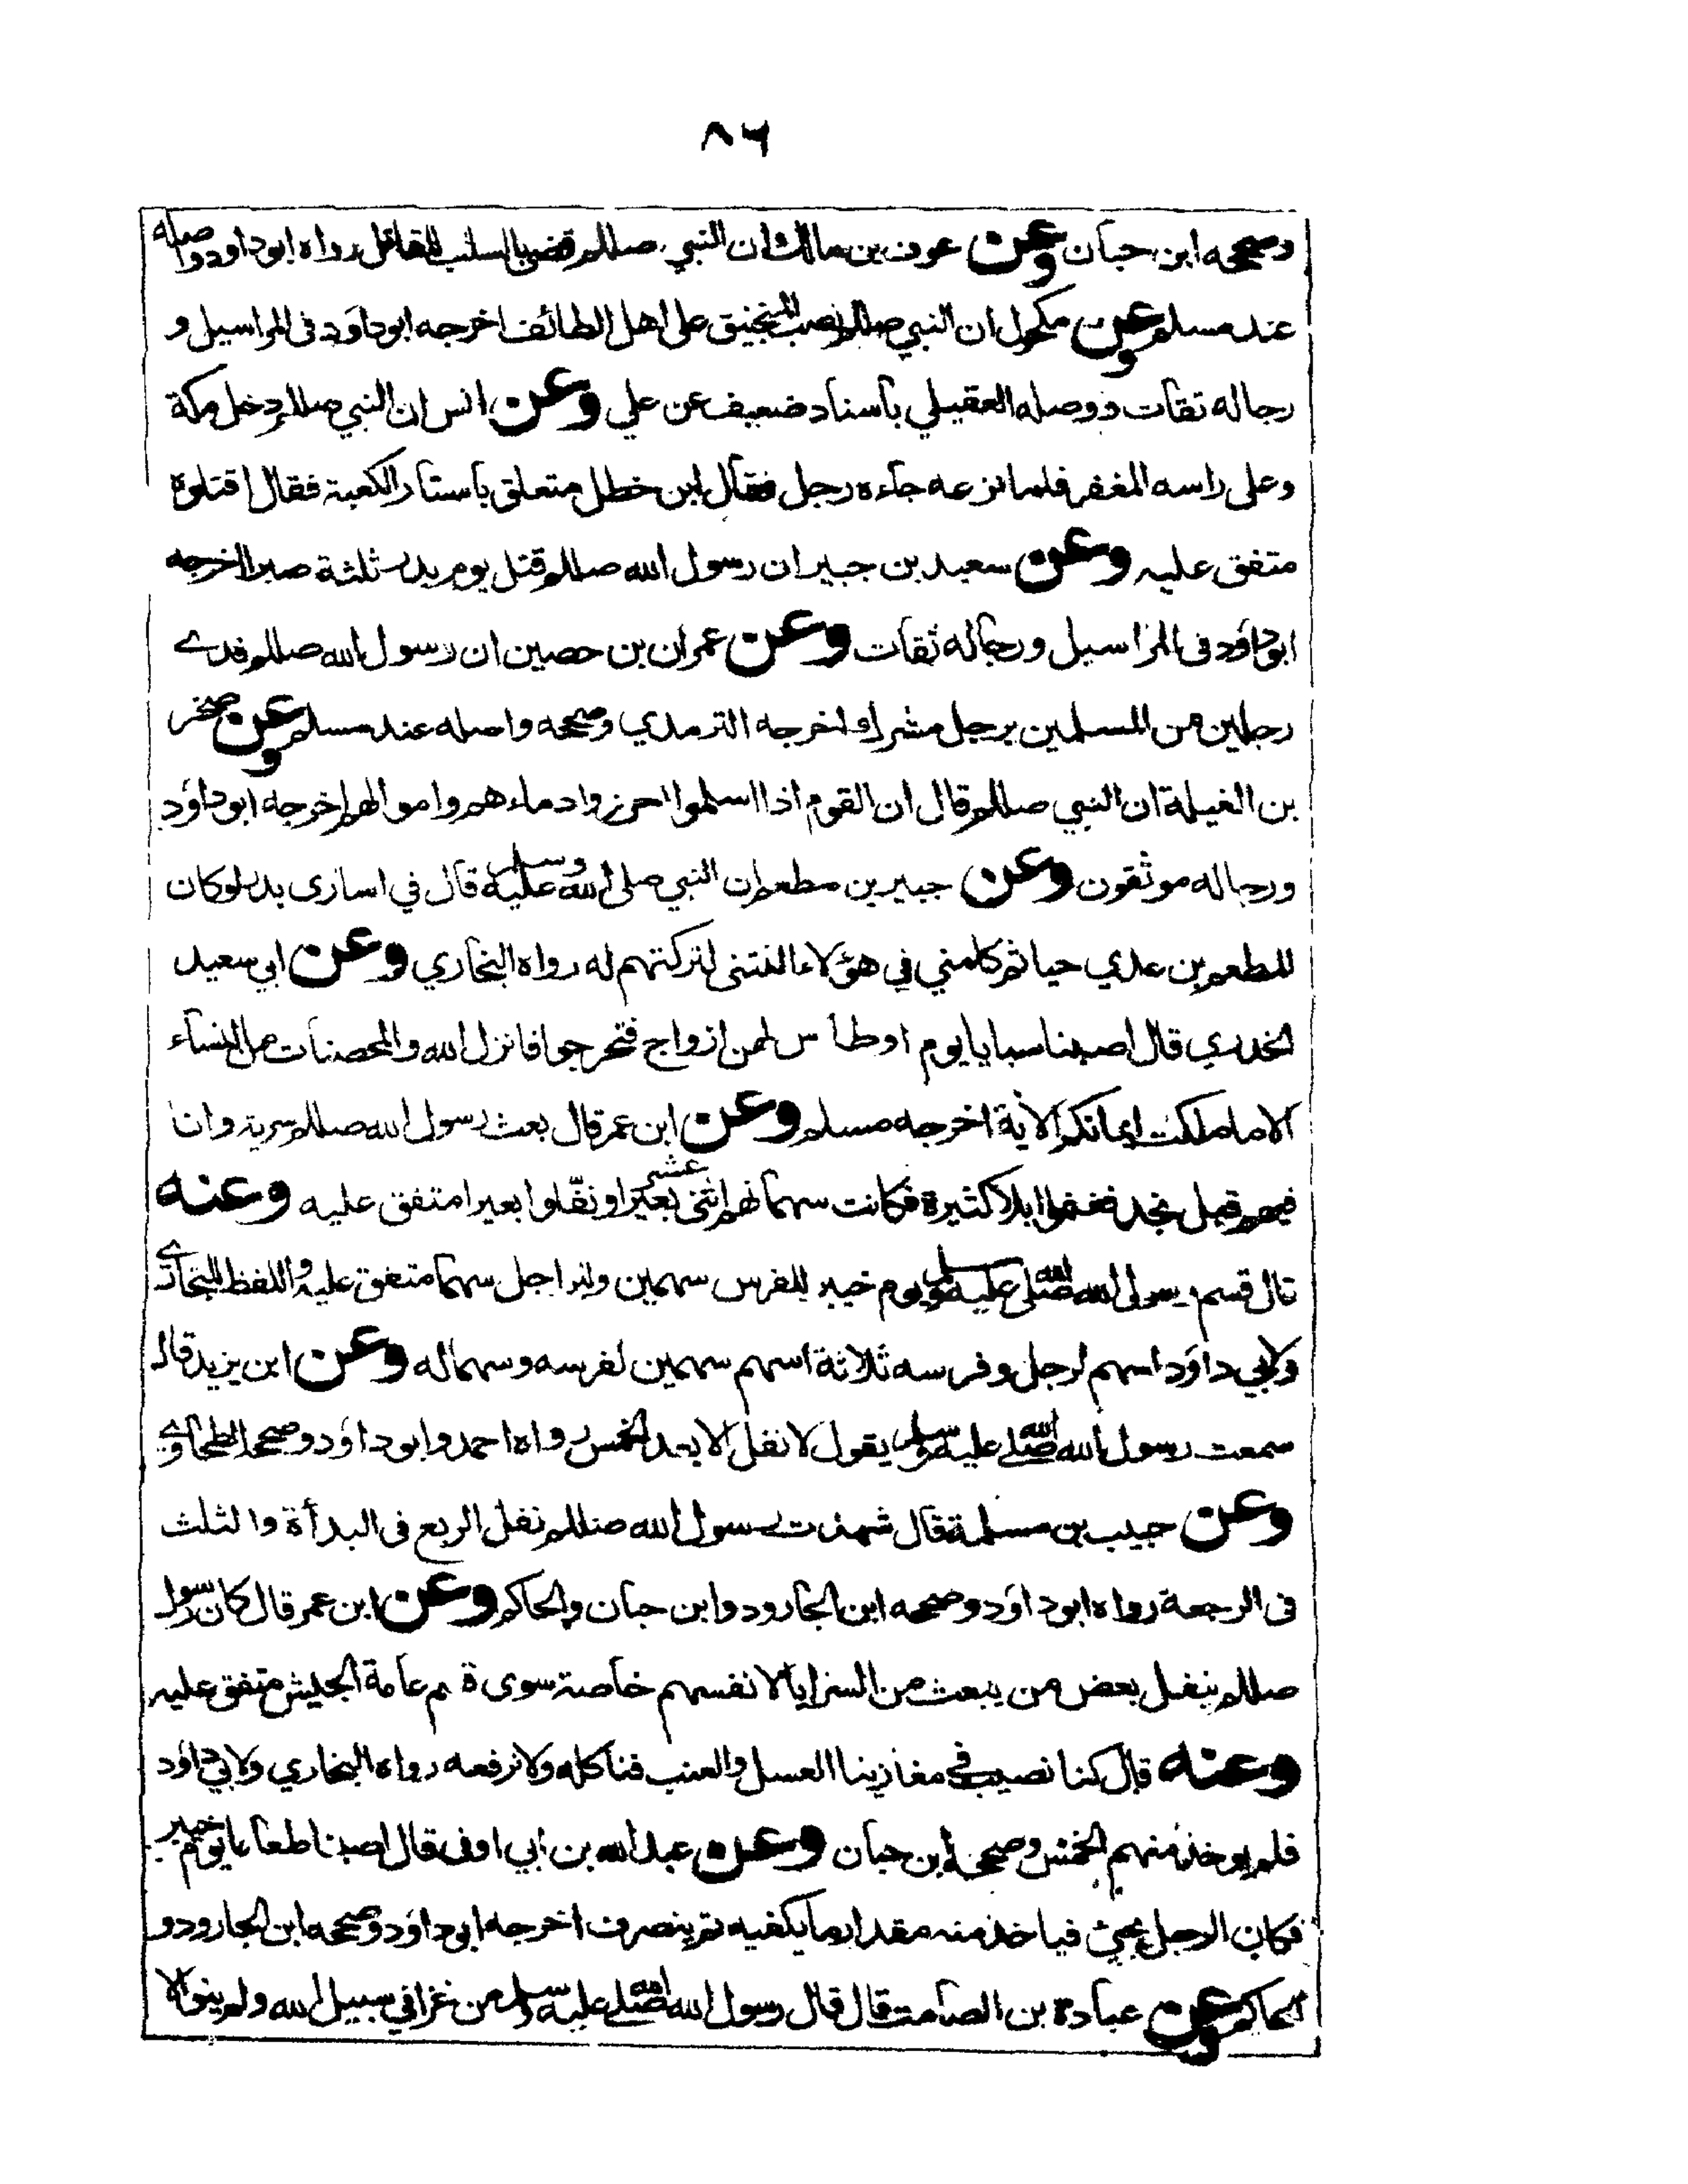 ٨٦
وصححه ابن حبان وعن عوف بن مالك ان النبي صللم قضى بالسلب للقاتل رواه ابوداود واصله
عند مسلم وعن مكحول ان النبي صللم نصب المنجنيق على اهل الطائف اخرجه ابوداؤد فى المراسيل و
رجاله ثقات ووصله العقيلي بأسناد ضعيف عن علي وعن انس ان النبي صللم دخل مكة
وعلى راسه المغفر فلما نزعه جاءه رجل فقال ابن خطل متعلق بأستار الكعبة فقال اقتلوه
متفق عليه وعن سعيد بن جبير ان رسول الله صللم قتل يوم بدر ثلثة صبرا اخرجه
ابوداؤد فى المراسيل ورجاله ثقات وعن عمران بن حصين ان رسول الله صللم فدے
رجلين من المسلمين برجل مشرك اخرجه الترمذي وصححه واصله عند مسلم وعن صخر
بن الغيلة ان النبي صللم قال ان القوم اذا اسلموا احرزوا دماءهم واموالهم اخرجه ابوداؤد
ورجاله موثقون وعن جبير بن مطعم ان النبي صلى الله عليه وسلم قال في اسارى بدر لوكان
المطعم بن عدي حيا ثم كلمني في هؤلاء النتنى لتركتهم له رواه البخاري وعن ابي سعيد
الخدري قال اصبنا سبايا يوم اوطاس لهن ازواج فتحرجوا فانزل الله والمحصنات من النساء
الاما ملكت ايمانكم الآية اخرجه مسلم وعن ابن عمر قال بعث رسول الله صللم سرية وانا
فيهم قبل نجد فغنموا ابلا كثيرة فكانت سهمانهم اثنى عشر بعيرا ونفّلوا بعيرا بعيرا متفق عليه وعنه
قال قسم رسول الله صلى الله عليه وسلم يوم خيبر للفرس سهمين وللراجل سهما متفق عليه واللفظ للبخارے
ولابي داؤد اسهم لرجل وفرسه ثلاثة اسهم سهمين لفرسه وسهما له وعن ابن يزيد قال
سمعت رسول الله صلے الله عليه وسلم يقول لا نفل الا بعد الخمس رواه احمد وابوداؤد وصححه الطحاوے
وعن حبيب بن مسلمة قال شهدت رسول الله صللم نفل الربع فى البدأة والثلث
فى الرجعة رواه ابوداؤد وصححه ابن الجارود وابن حبان والحاكم وعن ابن عمر قال كان رسول
صللم ينفل بعض من يبعث من السرايا لانفسهم خاصة سوى قسم عامة الجيش متفق عليه
وعنه قال كنا نصيب في مغازينا العسل والعنب فناكله ولا نرفعه رواه البخاري ولابي داؤد
فلم يوخذ منهم الخمس وصححه ابن حبان وعن عبد الله بن ابي اوفى قال اصبنا طعاما يوم خيبر
فكان الرجل يجئ فياخذ منه مقدار ما يكفيه ثم ينصرف اخرجه ابوداؤد وصححه ابن الجارود و
الحاكم وعن عبادة بن الصامت قال قال رسول الله صلے الله عليه وسلم من غزا في سبيل الله ولم ينو الا